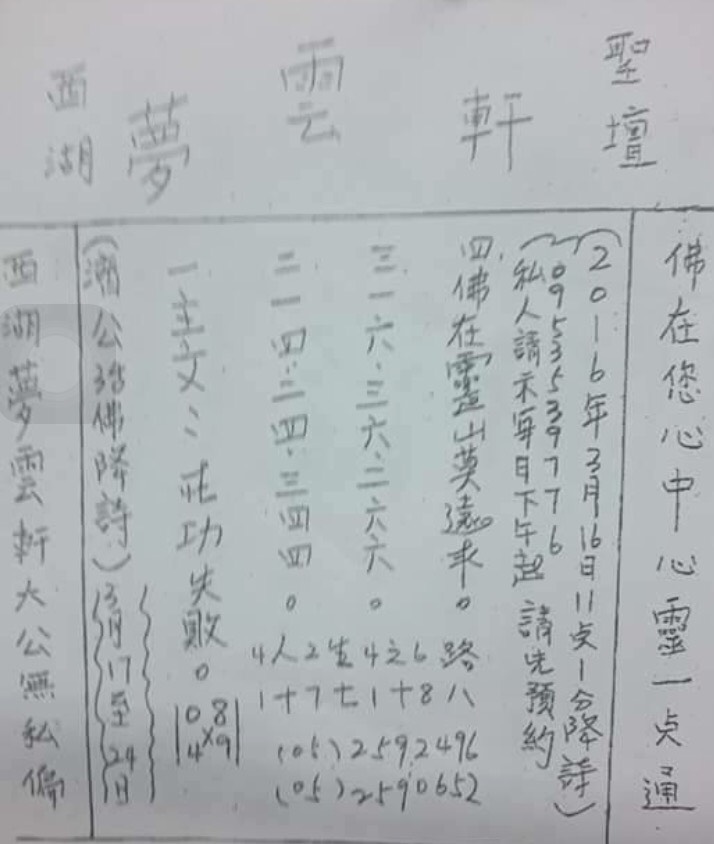 西湖夢雲軒聖壇
西湖夢雲軒大公無私偏
(濟公活佛降詩)
3月17至24日
一主文功失敗。
08
×
49
二一四.三四.三四四。
三一六.三六.二六六。
四.佛在靈山莫遠求。
4人2生4之6路
1+7七1+8八
(05)2592496
(05)2590652
私人請示每日下午起 請先預約
0953539776
(2016年3月16日11点1分降詩)
佛在您心中心靈一点通